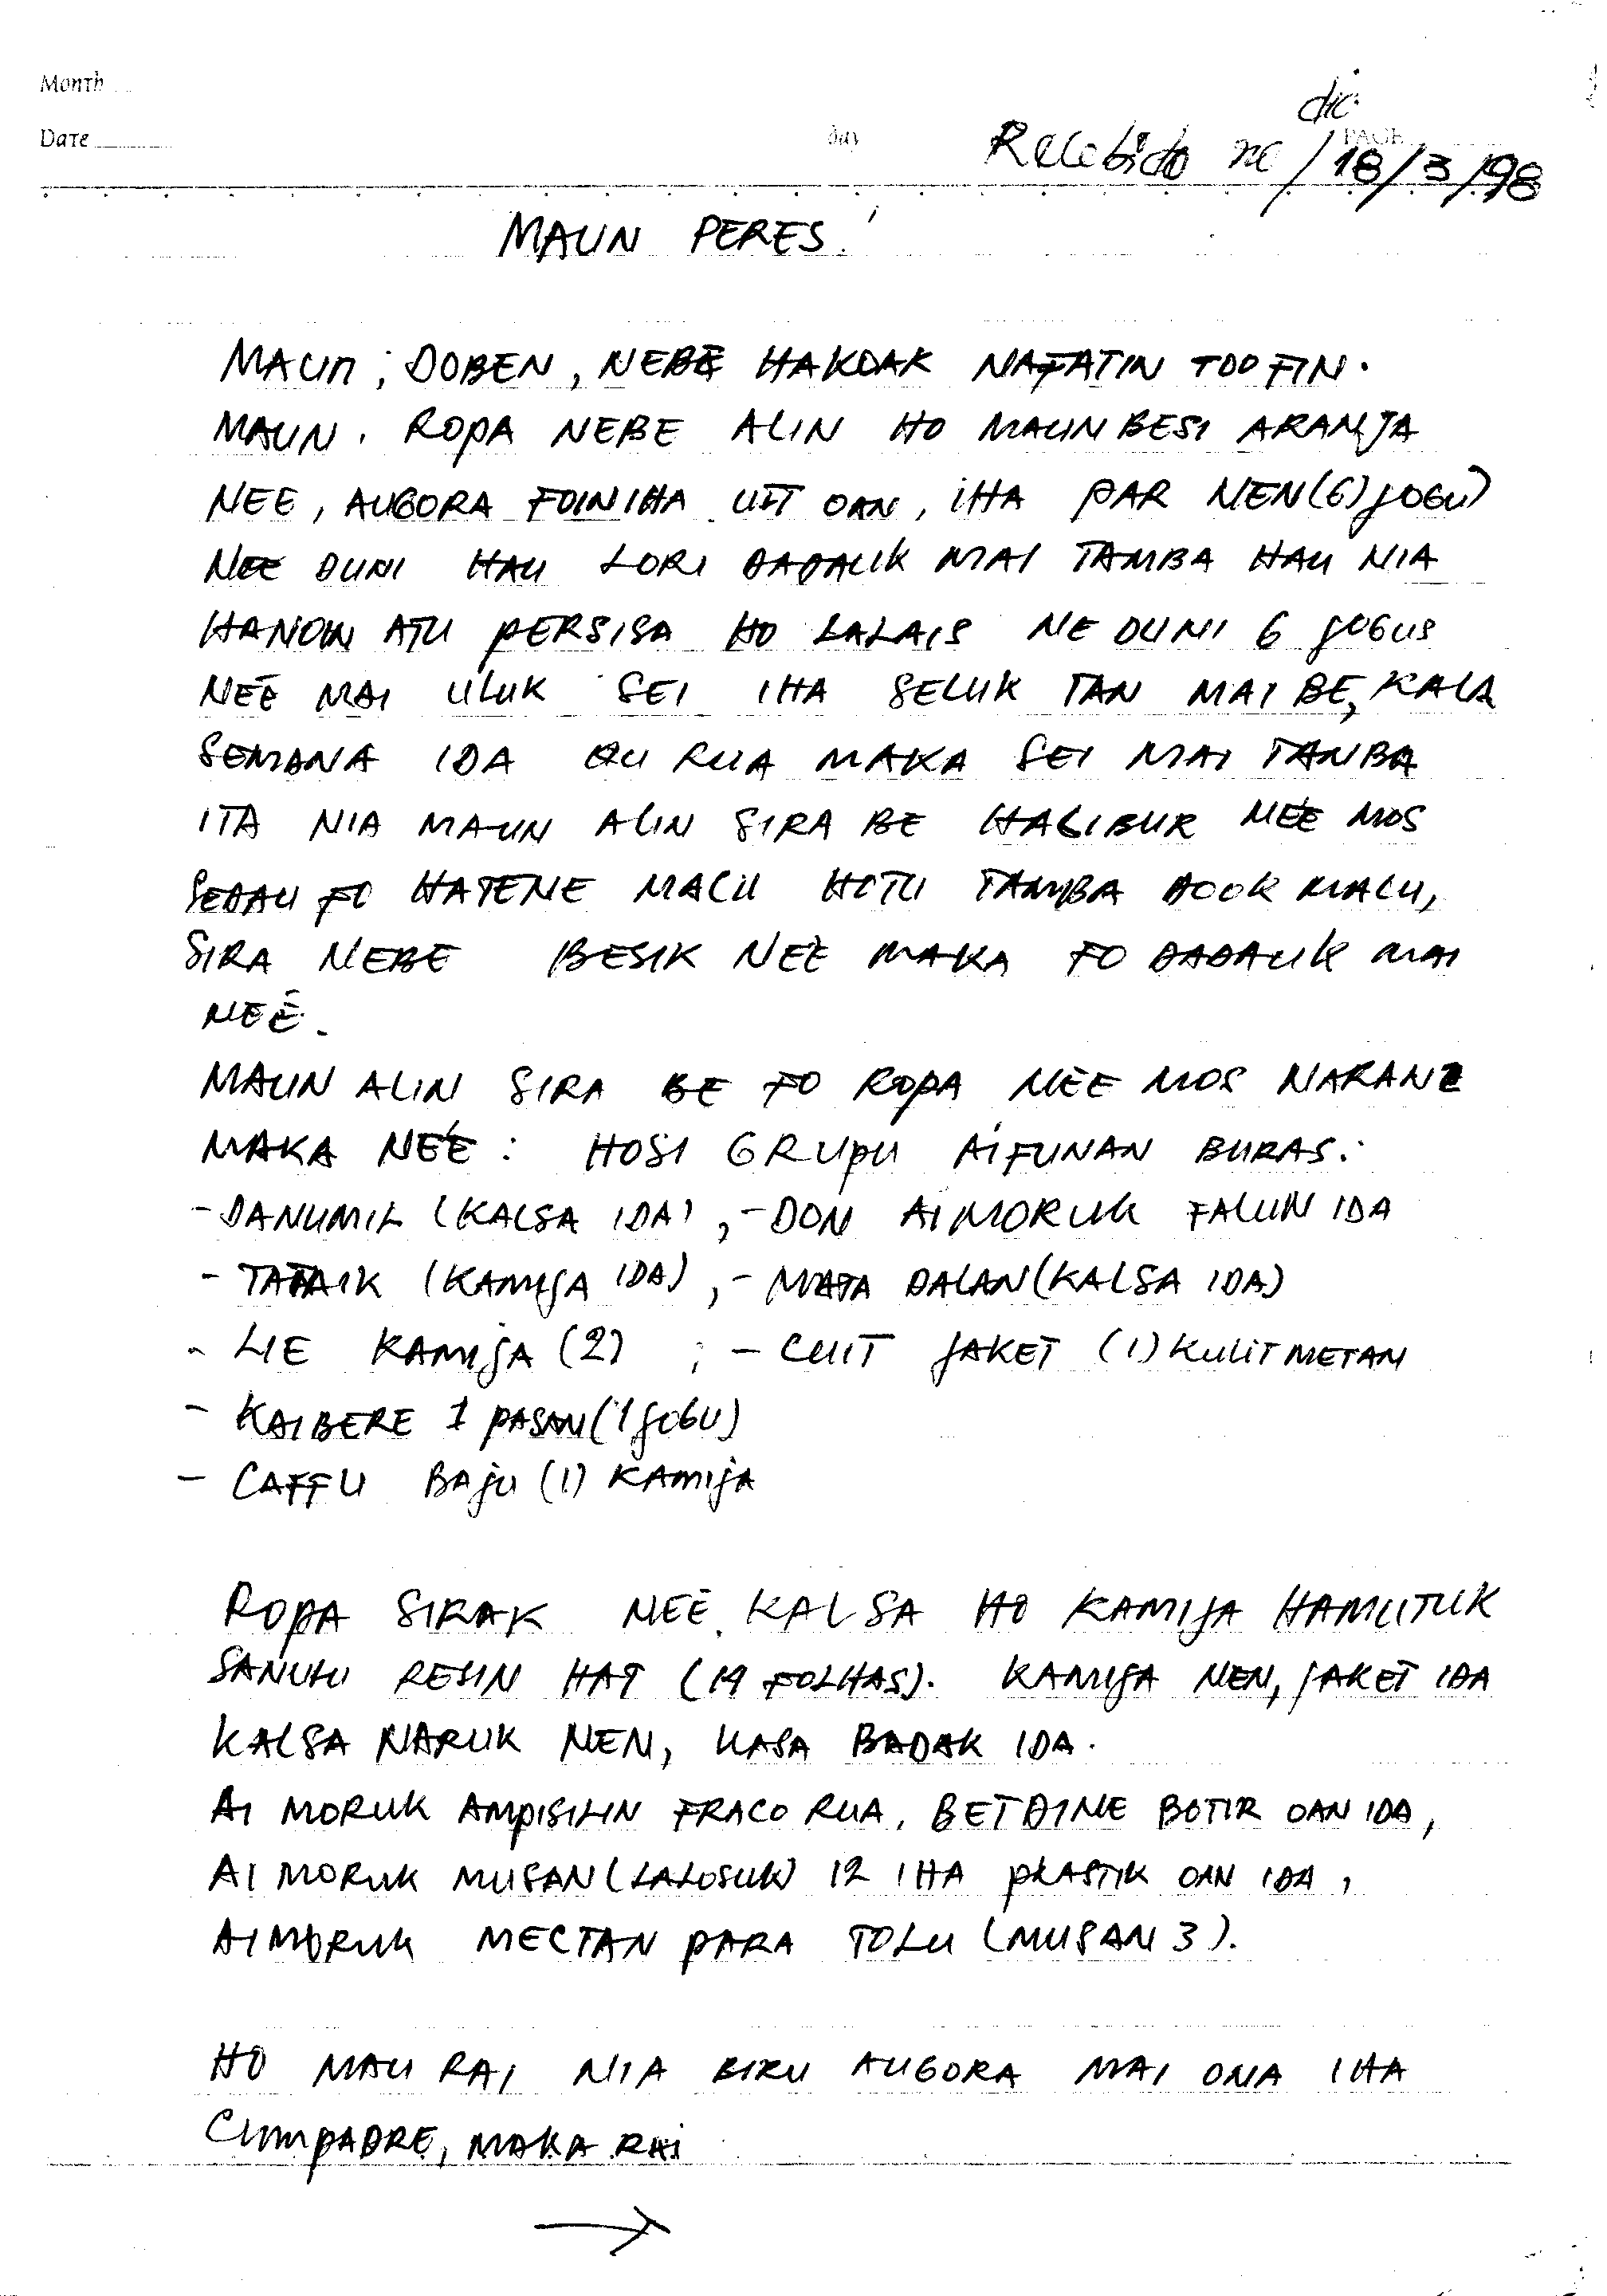 Month
dic
Date day Recebido no / 18/3/98
PAGE
MAUN PERES.
MAUN; DOBEN, NEBE HAKOAK NAFATIN TOO FIN.
MAUN. ROPA NEBE ALIN HO MAUN BESI ARANJA
NEE, AUGORA FOIN IHA UIT OAN, IHA PAR NEN (6) JOGU)
NEE DUNI HAU LORI DADAUK MAI TAMBA HAU NIA
HANOIN ATU PERSISA HO LALAIS NE DUNI 6 JOGUS
NEÉ MAI ULUK SEI IHA SELUK TAN MAI BE, KALA
SEMANA IDA OU RUA MAKA SEI MAI TANBA
ITA NIA MAUN ALIN SIRA BE HALIBUR NEÉ MOS
SEDAU FO HATENE MALU HOTU TAMBA DOOK MALU,
SIRA NEBE BESIK NEÉ MAKA FO DADAUK MAI
NEÉ.
MAUN ALIN SIRA BE FO ROPA NEÉ MOS NARAN
MAKA NEÉ: HOSI GRUPU AIFUNAN BURAS:
- DANUMIL (KALSA IDA), - DON AIMORUK FALUN IDA
- TATAIK (KAMIJA IDA), - MATA DALAN (KALSA IDA)
- LIE KAMIJA (2) ; - CUIT JAKET (1) KULIT METAN
- KAIBERE 1 PASAN (1 JOGU)
- CAFFU BAJU (1) KAMIJA
ROPA SIRAK NEÉ KALSA HO KAMIJA HAMUTUK
SANULU RESIN HAT (14 FOLHAS). KAMIJA NEN, JAKET IDA
KALSA NARUK NEN, KASA BADAK IDA.
AI MORUK AMPISILIN FRACO RUA, BETDINE BOTIR OAN IDA,
AI MORUK MUSAN (LALOSUK) 12 IHA PLASTIK OAN IDA,
AIMORUK MECTAN PARA TOLU (MUSAN 3).
HO MAU RAI NIA BIRU AUGORA MAI ONA IHA
CUMPADRE, MAKA RAI
→